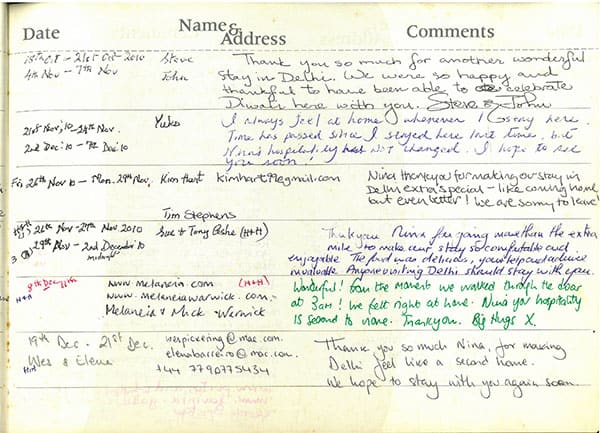 Date Name & Address Comments
18th Oct - 21st Oct 2010 Steve Thank you so much for another wonderful
4th Nov - 7th Nov John stay in Delhi. We were so happy and
thankful to have been able to celebrate
Diwali here with you. Steve & John
21st Nov, 10 - 24th Nov. Yuko I always feel at home whenever I stay here.
2nd Dec '10 - 7th Dec '10 Time has passed since I stayed here last time, but
Nina's hospitality has not changed. I hope to see
you soon!
Fri 26th Nov 10 - Mon. 29th Nov, Kim Hart kimhart99@gmail.com Nina thankyou for making our stay in
Delhi extra special - like coming home
but even better! We are sorry to leave!
Tim Stephens
(H+H) 26th Nov - 27th Nov 2010 Sue & Tony (H+H) Thankyou Nina for going more than the extra
29th Nov - 2nd December 10 mile to make our stay so comfortable and
midnight enjoyable. The food was delicious, your help and advice
invaluable. Anyone visiting Delhi should stay with you.
9th Dec 11th www.melancia.com (H+H) Wonderful! From the moment we walked through the door
H+H www.melaneiawarwick.com at 3am! We felt right at home. Nina your hospitality
Melaneia & Mick Warwick is second to none. Thankyou. Big Hugs X.
19th Dec - 21st Dec. wespickering@mac.com Thank you so much Nina, for making
Wes & Elena elenabarreiro@mac.com Delhi feel like a second home.
H+H +44 7790775434 We hope to stay with you again soon.